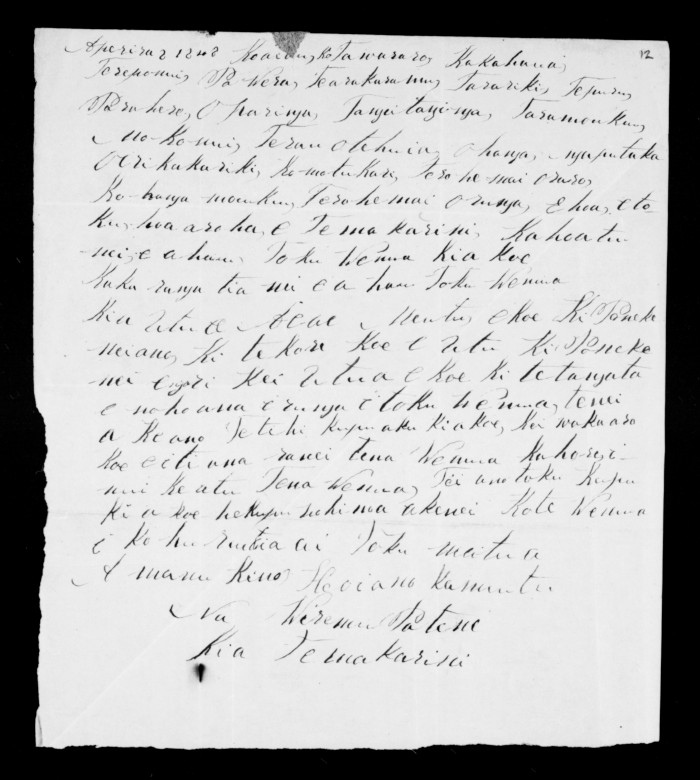 12
Aperira 2 1848 Kotawararo, Kakahana,
Terepomui, Pa Wera, Tearakaramu, Tarariki, Tepuru,
Parahere, O harinya, Tangitanginya, Taramouku,
Mokomui, Terau otehuia, Ohanya, nguputaka
Oririkakariki, Komotukari, Terohemai oraro,
Kohanya mouku, Terohemai Orunya, Ehoa, eto
Ku, hoa aroha, e Temakarini, Kahoatu
nei, e ahau, Toku Wenua Kia koe
Kaka ranga tia nei e a hau Toku Wenua
Kia Utu e koe Ki Poneke
neiano, Ki te kore Koe e Utu Ki Poneke
nei engari Kei Utua e koe Ki te tanyata
e nohoana i runya i toku Wenua, tenei
a Ke ano Tetehi Kupu aku Kia koe, Na wakaaro
koe e iti ana ranei tena Wenua Kahore,
nui ke atu Tena Wenua, Tei ano toku Kupu
Ki a koe he Kupu akenei Kote Wenua
i Ko hurutia ai Toku matua
A manu Kino, Heoiano Kamutu
Na Wiremu Patene
Kia Temakarini